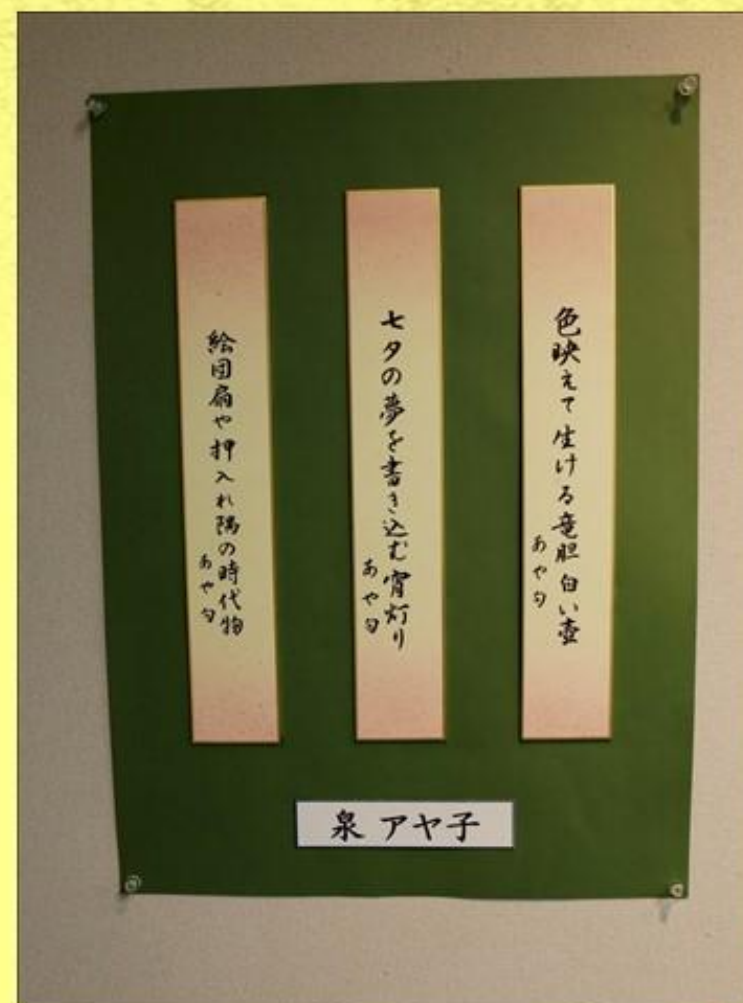 色映えて生ける竜胆白い壷
あや匂
七夕の夢を書き込む宵灯り
あや匂
絵団扇や押入れ隅の時代物
あや匂
泉 アヤ子